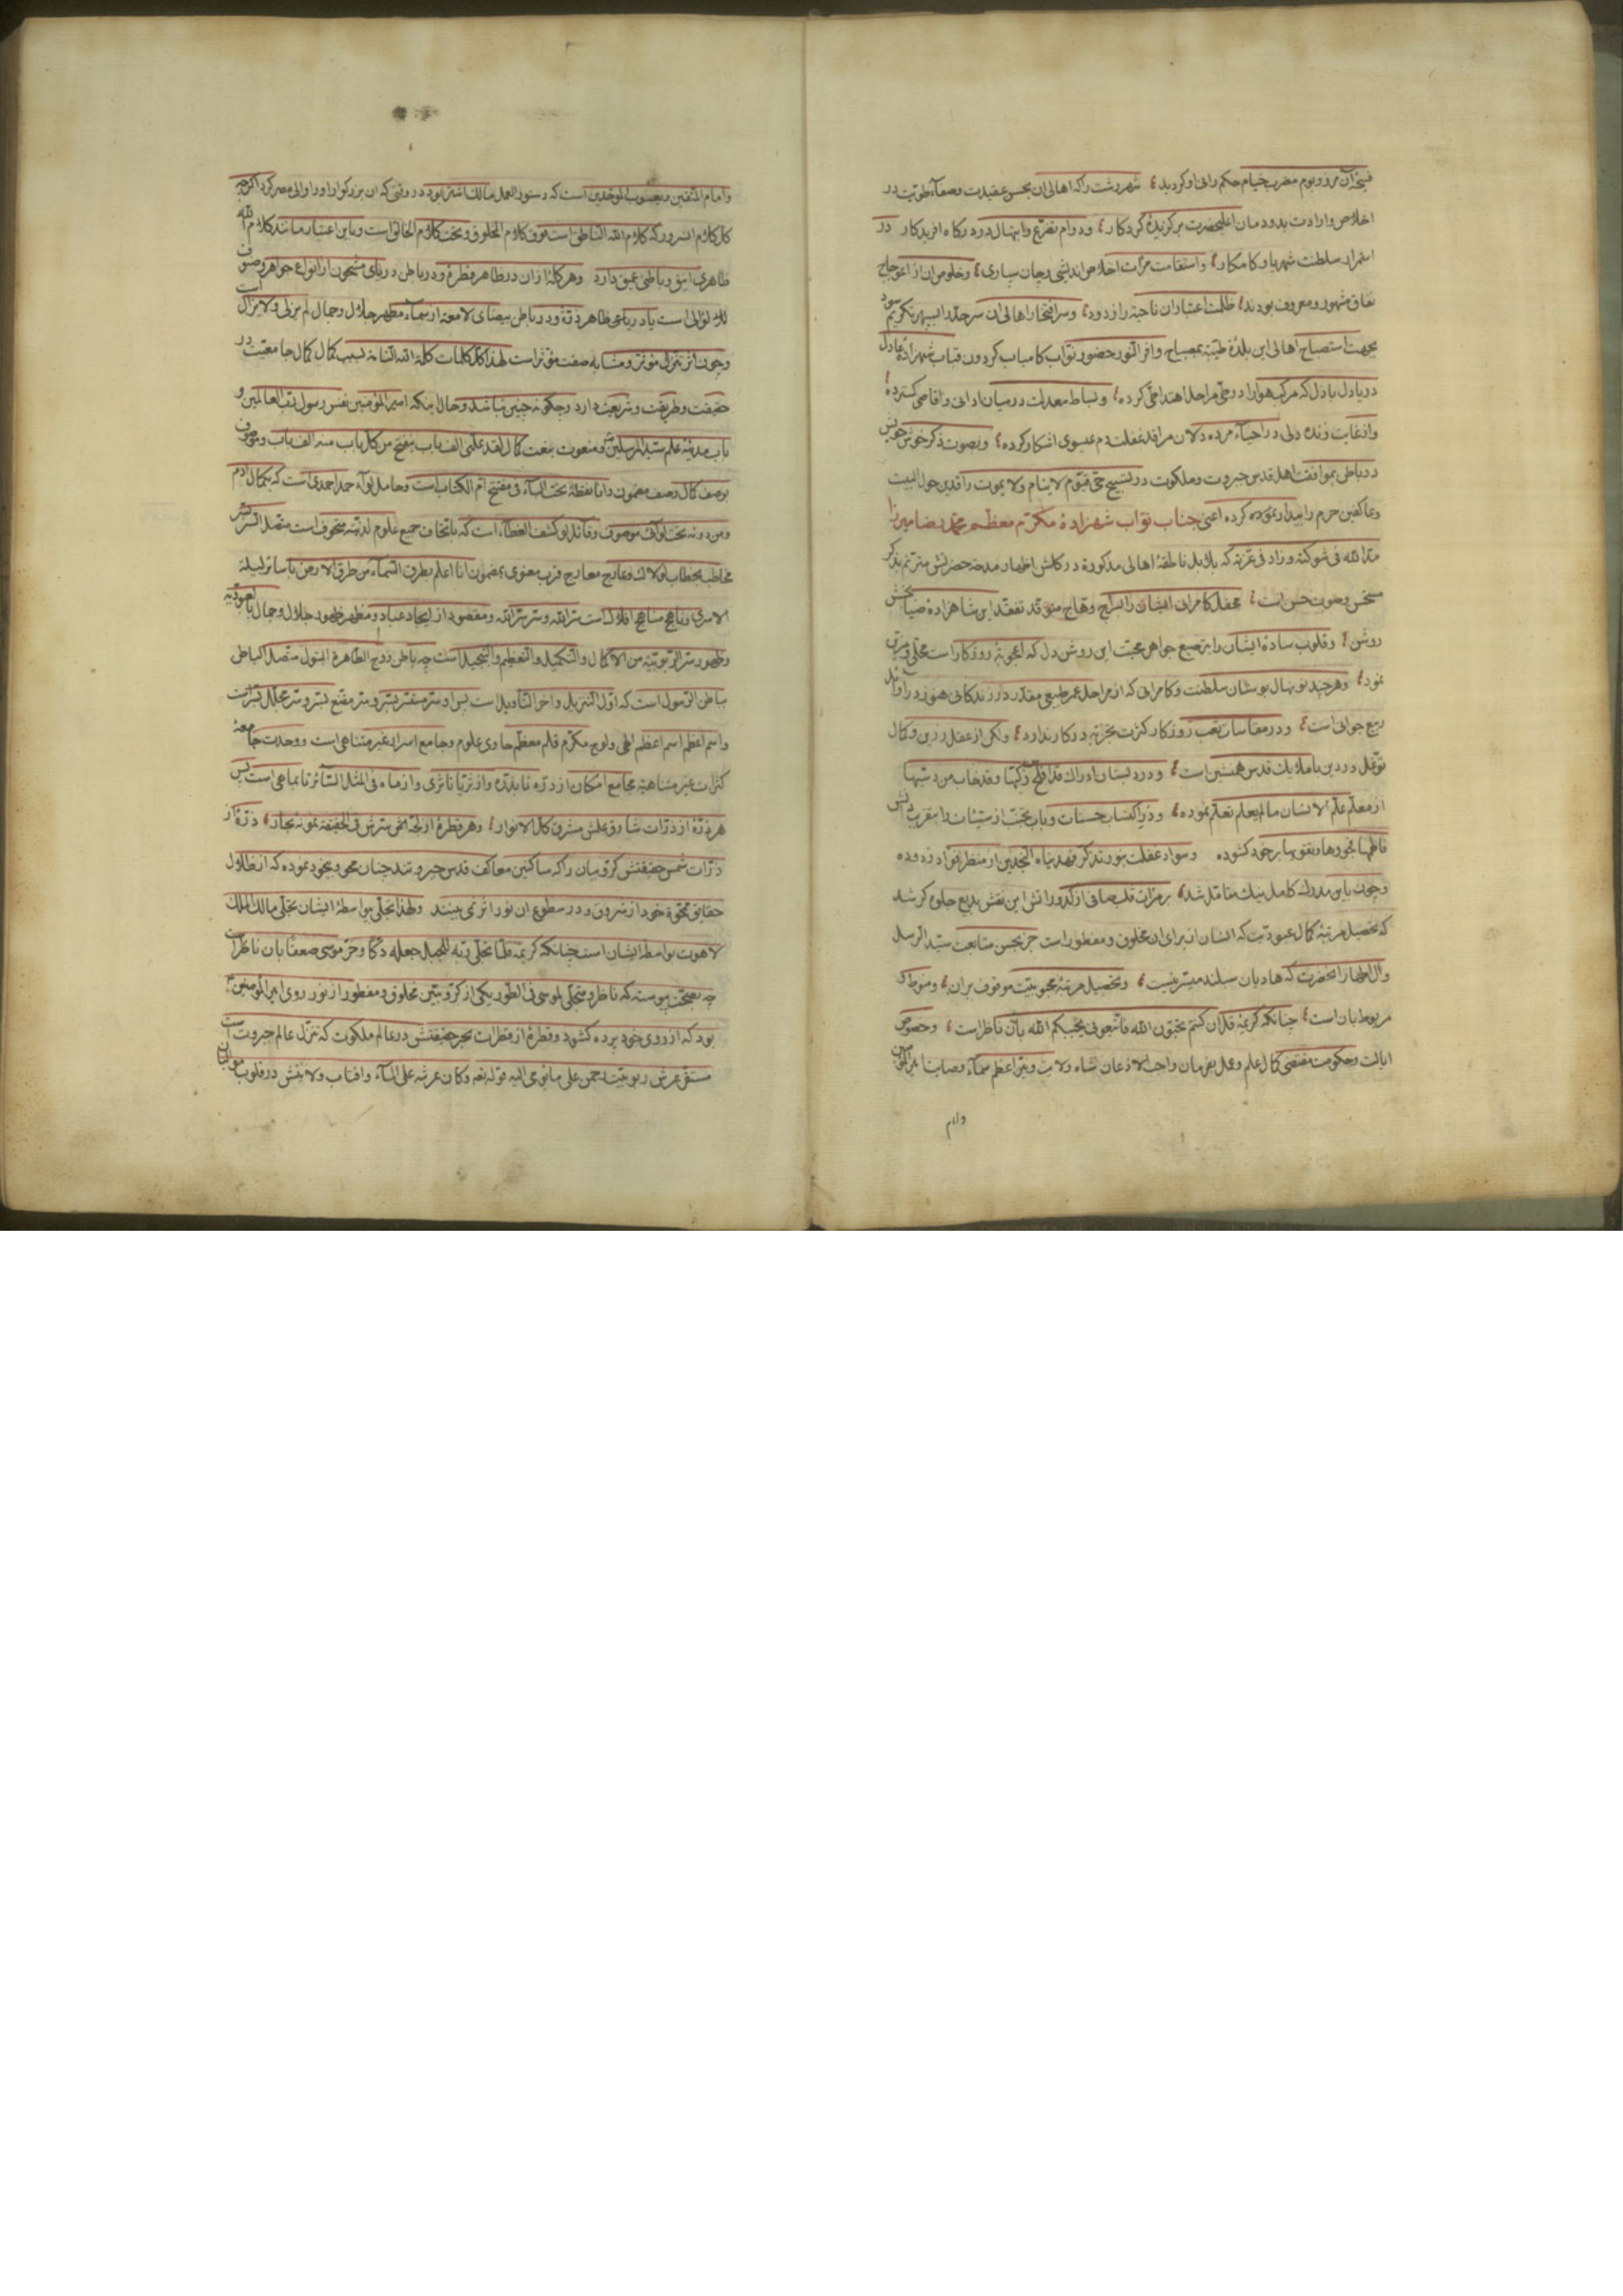 فسیحهٔ آن مرز و بوم مضرب خیام حکم رانی او کردید شهر رشت را که اهالی آن بحسن عقیدت و صفآء طویت در
اخلاص و ارادت بدودمان اعلیحضرت برکزیدهٔ کردکار و دوام تضرع و ابتهال در درکاه افریدکار در
استمرار سلطنت شهریار کامکار و استقامت مرآت اخلاص اندیشی و جان سپاری و خلوص ان از اعوجاج
نفاق مشهور و معروف بودند ظلمت اعتبار ان ناحیه را زدود و سر افتخار اهالی ان سرحد را بسپهر تکریم سود
بجهت استصباح اهالی این بلدهٔ طیبه بمصباح وافر النور حضور نواب کامیاب کردون قباب شهزادهٔ عادل
دریادل باذل که مرکب هوا را در طی مراحل اهتدا پی کرده و بساط معدلت در میان ادانی و اقاصی کسترده
و از غایت زنده دلی در احیآء مرده دلان مراقد غفلت دم عیسوی اشکار کرده و بصوت ذکر خوش خویش
در باطن بموافقت اهل قدس جبروت و ملکوت در تسبیح حی قیوم لاینام و لایموت راقدین حول البیت
و عاکفین حرم را بیدار نموده کرده اعنی جناب نواب شهزادهٔ مکرم معظم محمد رضا میرزا
مد الله فی شوکته و زاد فی عزته که بلابل ناطقهٔ اهالی مذکوره در کلشن اظهار مدحهٔ حضرتش مترنم بذکر
مستحسن و صوت حسن است محفل کامرانی ایشان را بسراج وهاج متوقد تفقد این شاهزادهٔ ضیا بخش
روشن و قلوب سادهٔ ایشان را بترصیع جواهر محبت این روشن دل که اعجوبهٔ روزکار است محلی و مزین
نمود و هر چند نونهال بوستان سلطنت و کامرانی که از مراحل عمر طبیعی مقدر در زندکانی هنوز در اوائل
ربیع جوانی است و در مقاسات تعب روزکار کثرت تجربه در کار ندارد ولکن از عقل رزین و کمال
توغل در دین با ملایک قدس همنشین است و در دبستان ادراک قد افلح من زکیها و قد خاب من دسیها
از معلم علم الانسان ما لم یعلم تعلم نموده و در اکتساب حسنات و باب تجنب از سیئات را بتقریب دانش
فالهمها فجورها و تقویها بر خود کشوده و سواد غفلت بنور تذکر فهدیناه النجدین از منظر فؤاد زدوده
و چون باین مدرک کامل نیک متأمل شد بر مرآت قلب صافی از کدوراتش این نقش بدیع جلوه کر شد
که تحصیل مرتبهٔ کمال عبودیت که انسان از برای ان مخلوق و مفطور است جز بحسن متابعت سید الرسل
و آل اطهار انحضرت که هادیان سبلند میسر نیست و تحصیل مرتبهٔ محبوبیت موقوف بر ان و منوط و
مربوط بان است چنانکه کریمهٔ قل ان کنتم تحبون الله فاتبعونی یحببکم الله بآن ناظر است و حصول
ایالت و حکومت مقتضی کمال علم و عمل بفرمان واجب الاذعان شاه ولایت و نیر اعظم سمآء وصایت امیر المؤمنین
وامام
و امام المتقین و یعسوب الموحدین است که دستور العمل مالک اشتر بود در وقتی که ان بزرکوار او را والی مصر کرد اکرچه
کل کلام انسرور که کلام الله الناطق است فوق کلام المخلوق و تحت کلام الخالق است و باین اعتبار مانند کلام الله
ظاهری انیق و باطنی عمیق دارد و هر کلمهٔ از ان در ظاهر قطرهٔ و در باطن دریای مشحون از انواع جواهر و صنوف
لئالی است یا در بادی ظاهر ذرهٔ و در باطن بیضای لامعه از سمآء مظهر جلال و جمال لم یزلی و لایزال است
و چون اثر تنزل مؤثر و مشابه صفت مؤثر است لهذا کل کلمات کلمة الله التامه بسبب کمال کمال جامعیت در
حقیقت و طریقت و شریعت دارد و چکونه چنین نباشد و حال اینکه امیر المؤمنین نفس رسول رب العالمین و
باب مدینهٔ علم سید المرسلین و منعوت بنعت کمال لقد علمنی الف باب ینفتح من کل باب منه الف باب و موصوف
بوصف کمال وصف مضمون و انا نقطهٔ تحت البآء فی مفتتح ام الکتاب است و حامل لوآء حمد احمدی است که بکمال ادم
و من دونه تحت لوآئی موصوف و قآئل لو کشف الغطآء است که باتحاف جمیع علوم لدنیه متحوف است متصل السر بسر
مخاطب بخطاب لولاک و عارج معارج قرب معنوی بمضمون انا اعلم بطرق السمآء من طرق الارض باسائر لیلة
الاسری و ناهج مناهج افلاک است سر الله و سر سر الله و مقصود از ایجاد عباد و مظهر ظهور جلال و جمال بالعبودیه
و ظهور سر الربوبیه من الاکمال و التکمیل و التعظیم و التبجیل است چه باطن زوج الطاهرة البتول متصل الباطن
بباطن الرسول است که اول التنزیل و اخر التأویل است پس او سر مستتر بسر و سر مقنع بسر و سر مجلل بسر است
و اسم اعظم اسم اعظم الهی و لوح مکرم قلم معظم حاوی علوم و جامع اسرار غیر متناهی است و وحدت جامعهٔ
کثرات غیر متناهیهٔ مجامع امکان از دره تا بذره و از ثریا تا ثری و از ماه فی المثل السآئر تا بماهی است پس
هر ذرهٔ از ذرات شارق علمش مشرق کل الانوار و هر قطرهٔ از لجهٔ سرش فی الحقیقه نمونه بحار ذرهٔ از
ذرات شمس حقیقتش کروبیان را که ساکنین معاکف قدس جبروتند چنان محو و بیخود نموده که از ظلال
حقایق ممحوهٔ خود از شروق و در سطوع ان نور اثری نبینند و لهذا تجلی بواسطهٔ ایشان تجلی مالک الملک
لاهوت بواسطهٔ ایشان است چنانکه کریمه فلما تجلی ربه للجبل جعله دکا و خر موسی صعقا بان ناظر است
چه بصحت پیوسته که ناظر و متجلی لموسی فی الطور یکی از کروبیین مخلوق و مفطور از نور روی امیر المؤمنین
بود که از روی خود پرده کشود و قطرهٔ از قطرات بحر حقیقتش در عالم ملکوت که تنزل عالم جبروت است
مستقر عرش ربوبیت رحمن علی ما یومی الیه قوله تعه و کان عرشه علی المآء و افتاب ولایتش در قلوب موالیان